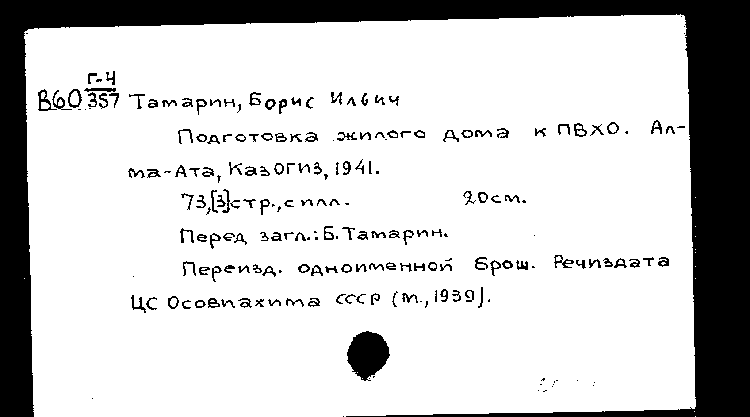 Г-4
В60 357 Тамарин, Борис Ильич
Подготовка жилого дома к ПВХО. Ал-
ма-Ата, Казогиз, 1941.
73,[3]стр., с илл. 20см.
Перед загл.: Б. Тамарин.
Переизд. одноименной брош. Речиздата
ЦС Осовиахима СССР (М., 1939).